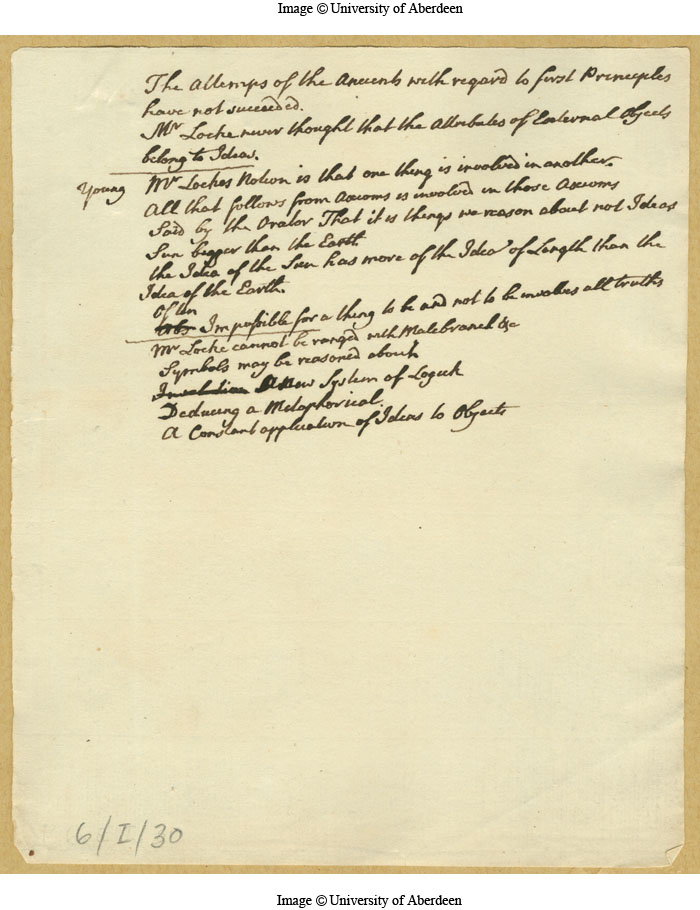 Image © University of Aberdeen
The attemps of the Ancients with regard to first Principles
have not succeeded.
Mr Locke never thought that the Attributes of External Objects
belong to Ideas.
Young Mr Lockes Notion is that one thing is involved in another.
All that follows from Axioms is involved in those Axioms
Said by the Orator That it is things we reason about not Ideas
Sun bigger than the Earth
the Idea of the Sun has more of the Idea of Length than the
Idea of the Earth.
Impossible for a thing to be and not to be involves all truths
Mr Locke cannot be ranged with Malebranch &c
Symbols may be reasoned about
New System of Logick
Deducing a Metaphorical.
A Constant application of Ideas to Objects
6/I/30
Image © University of Aberdeen